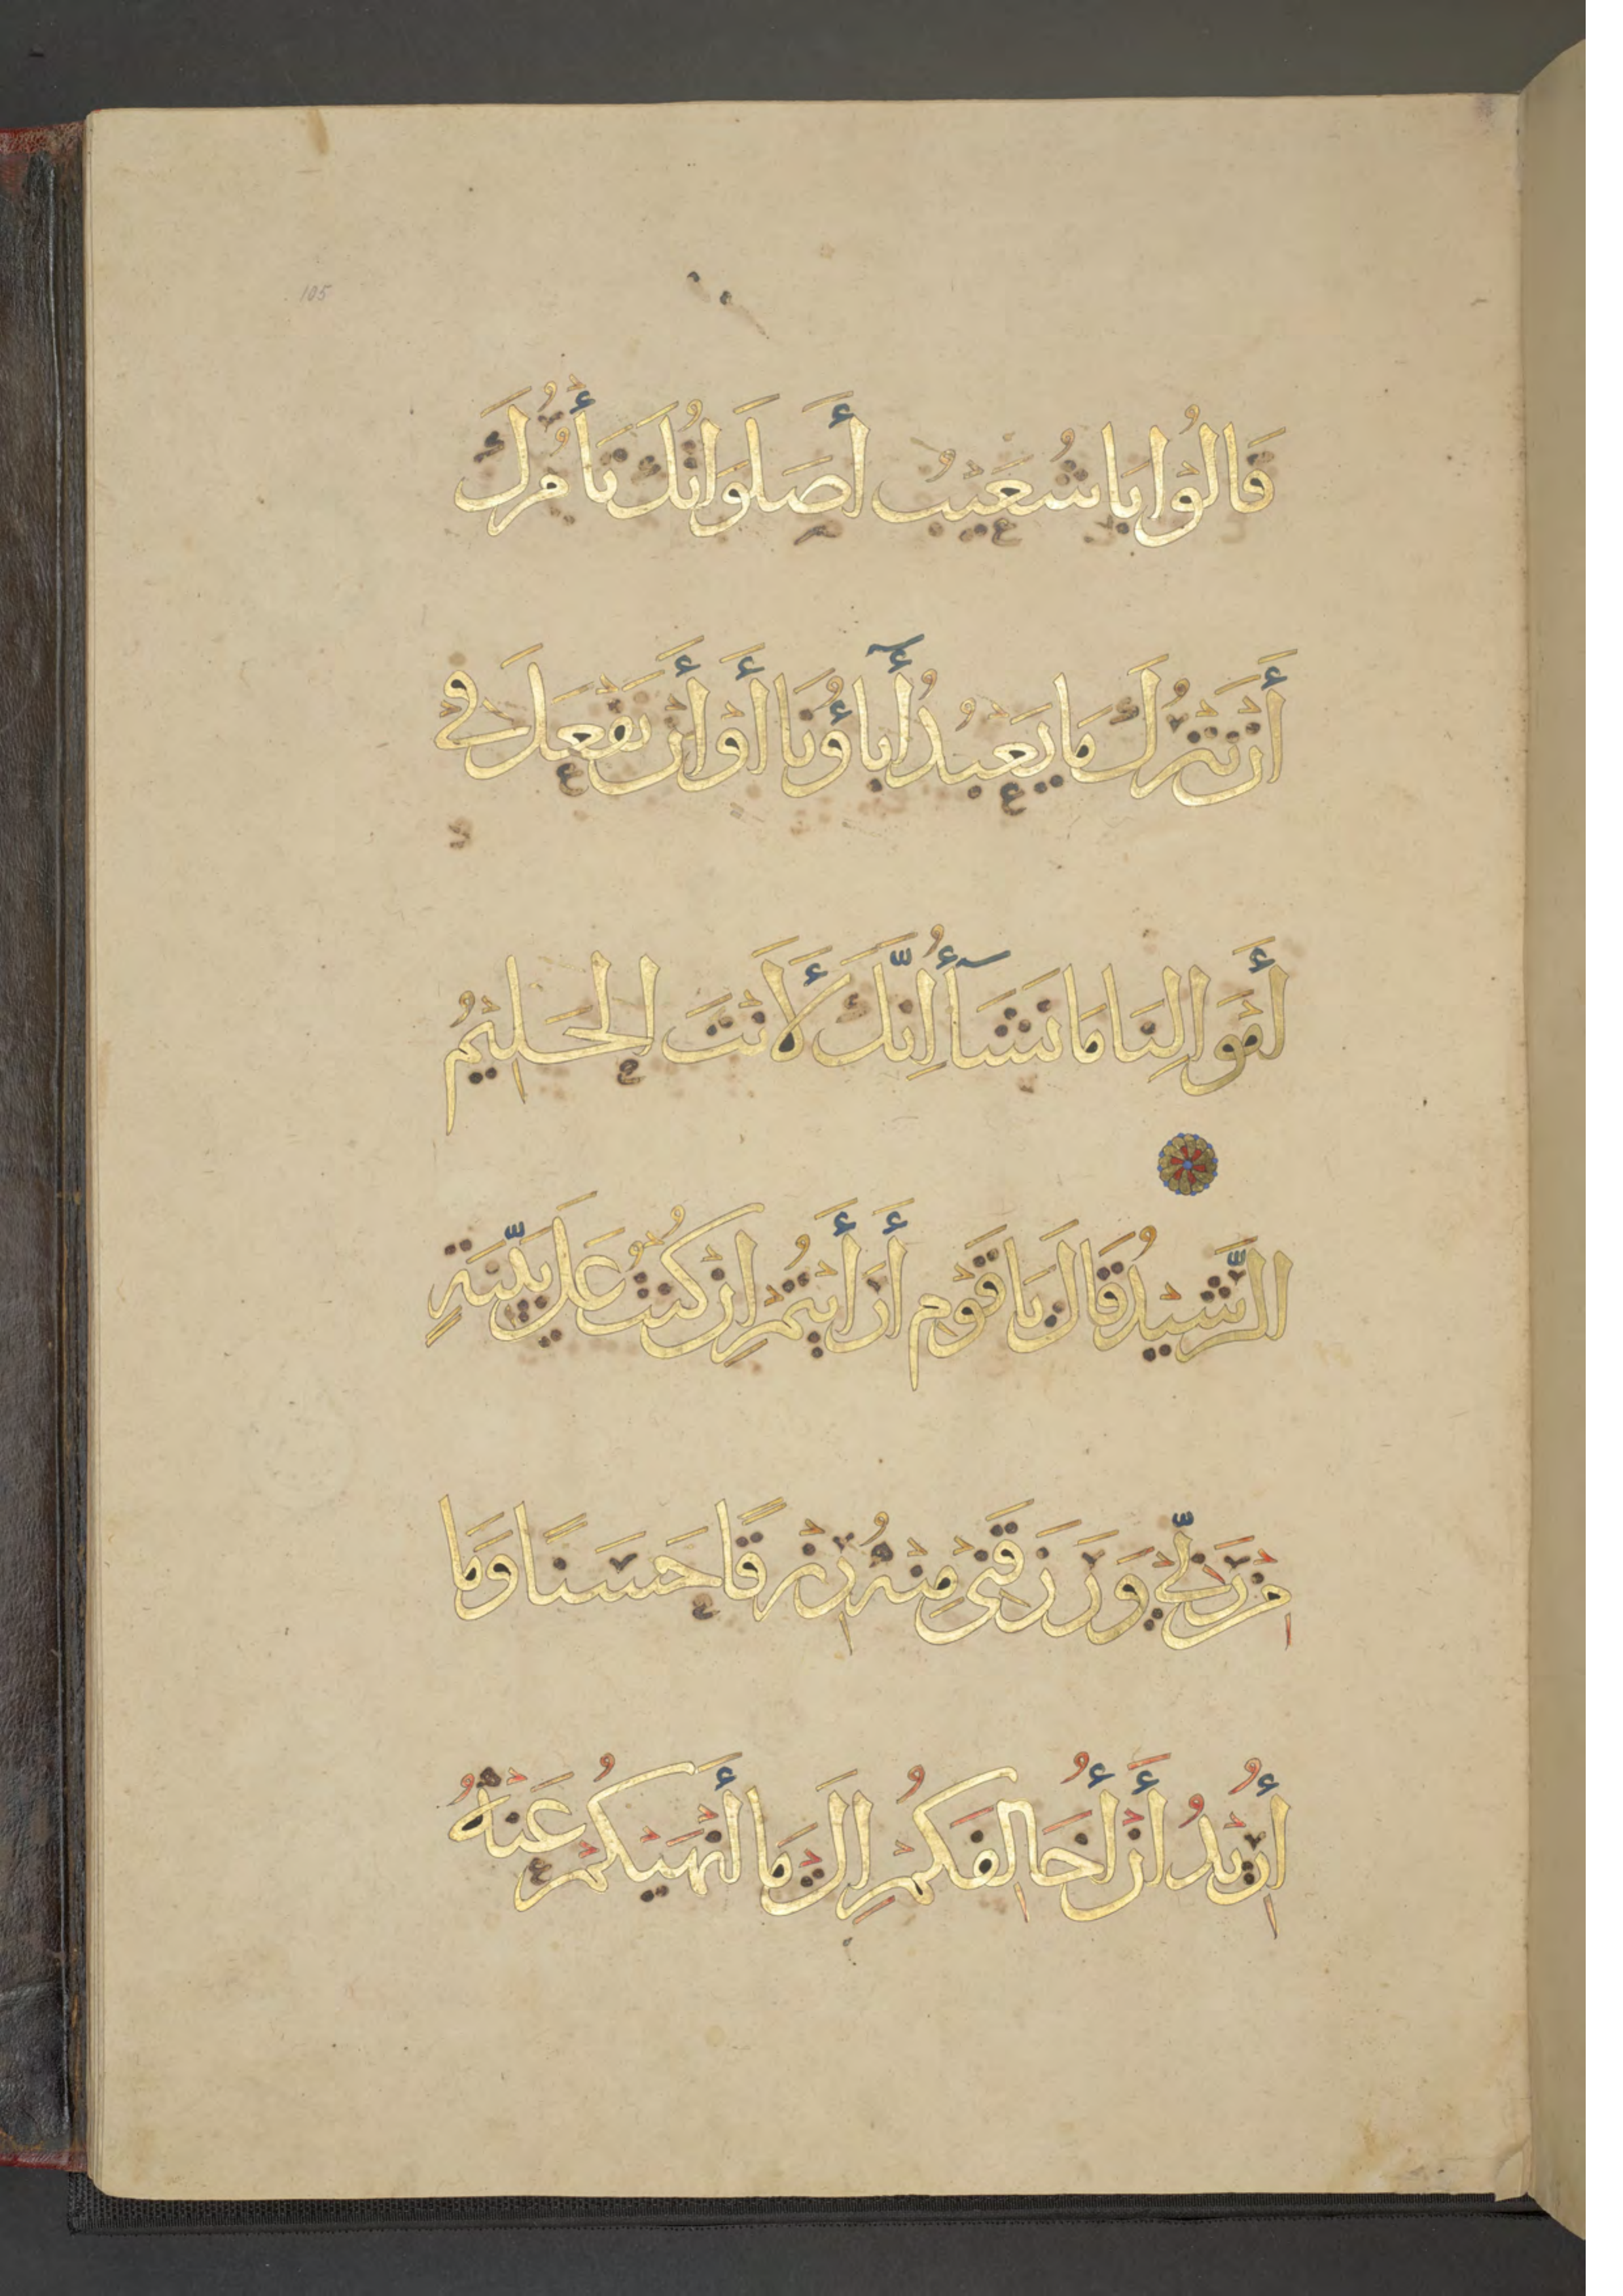 105
قَالُوْا يَا شُعَيْبُ أَصَلَوَاتُكَ تَأْمُرُكَ
أَنْ نَتْرُكَ مَا يَعْبُدُ أٓبَاؤُنَا أَوْ أَنْ نَفْعَلَ فِي
أَمْوَالِنَا مَا نَشَآءُ اِنَّكَ لَأَنْتَ الْحَلِيْمُ
الرَّشِيْدُ قَالَ يَا قَوْمِ أَرَأَيْتُمْ اِنْ كُنْتُ عَلَى بَيِّنَةٍ
مِنْ رَبِّيْ وَرَزَقَنِيْ مِنْهُ رِزْقًا حَسَنًا وَمَا
أُرِيْدُ أَنْ أُخَالِفَكُمْ اِلَى مَا أَنْهَيْكُمْ عَنْهُ